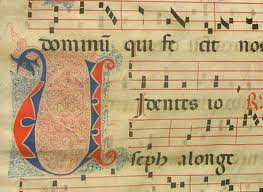 dominū qui fe cit nos
Videntes io R
ſeph alonge